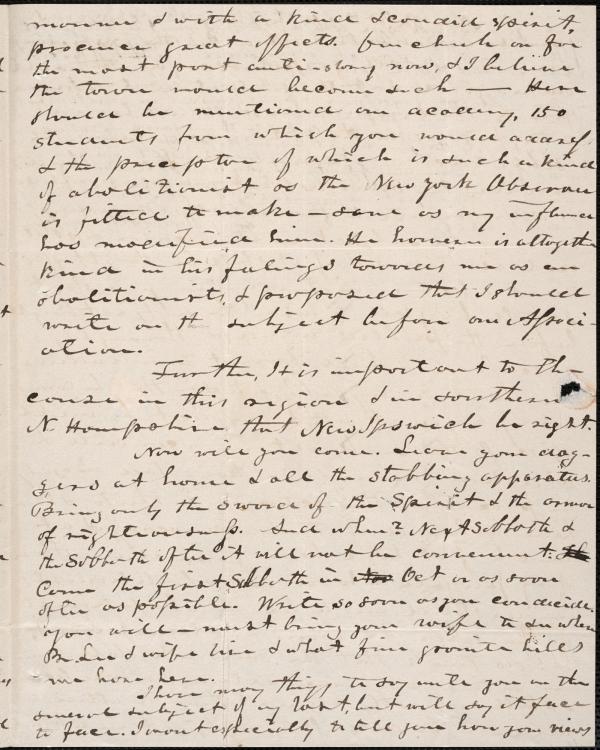 manner & with a kind & candid spirit,
produce great effects. Our church are for
the most part anti-slavery now, & I believe
the town would become such — Here
should be mentioned our academy, 150
students from which you would address
& the preceptor of which is such a kind
of abolitionist as the New York Observer
is fitted to make — save as my influence
has modified him. He however is altogether
kind in his feelings towards me as an
abolitionist, & proposed that I should
write on th subject before our Associ-
ation.
Further, It is important to the
cause in this region & in southern
N. Hampshire that New Ipswich be right.
Now will you come. Leave your dag-
gers at home & all the stabbing apparatus.
Bring only the sword of the Spirit & the armor
of righteousness. And when? Next Sabbath &
the Sabbath after it will not be convenient.
Come the first Sabbath in Oct or as soon
after as possible. Write so soon as you can decide.
You will — must bring your wife to see where
Br. Lee & wife live & what fine granite hills
we have here.
I have many things to say unto you on the
general subject of my last, but will say it face
to face. I want especially to tell you how your views